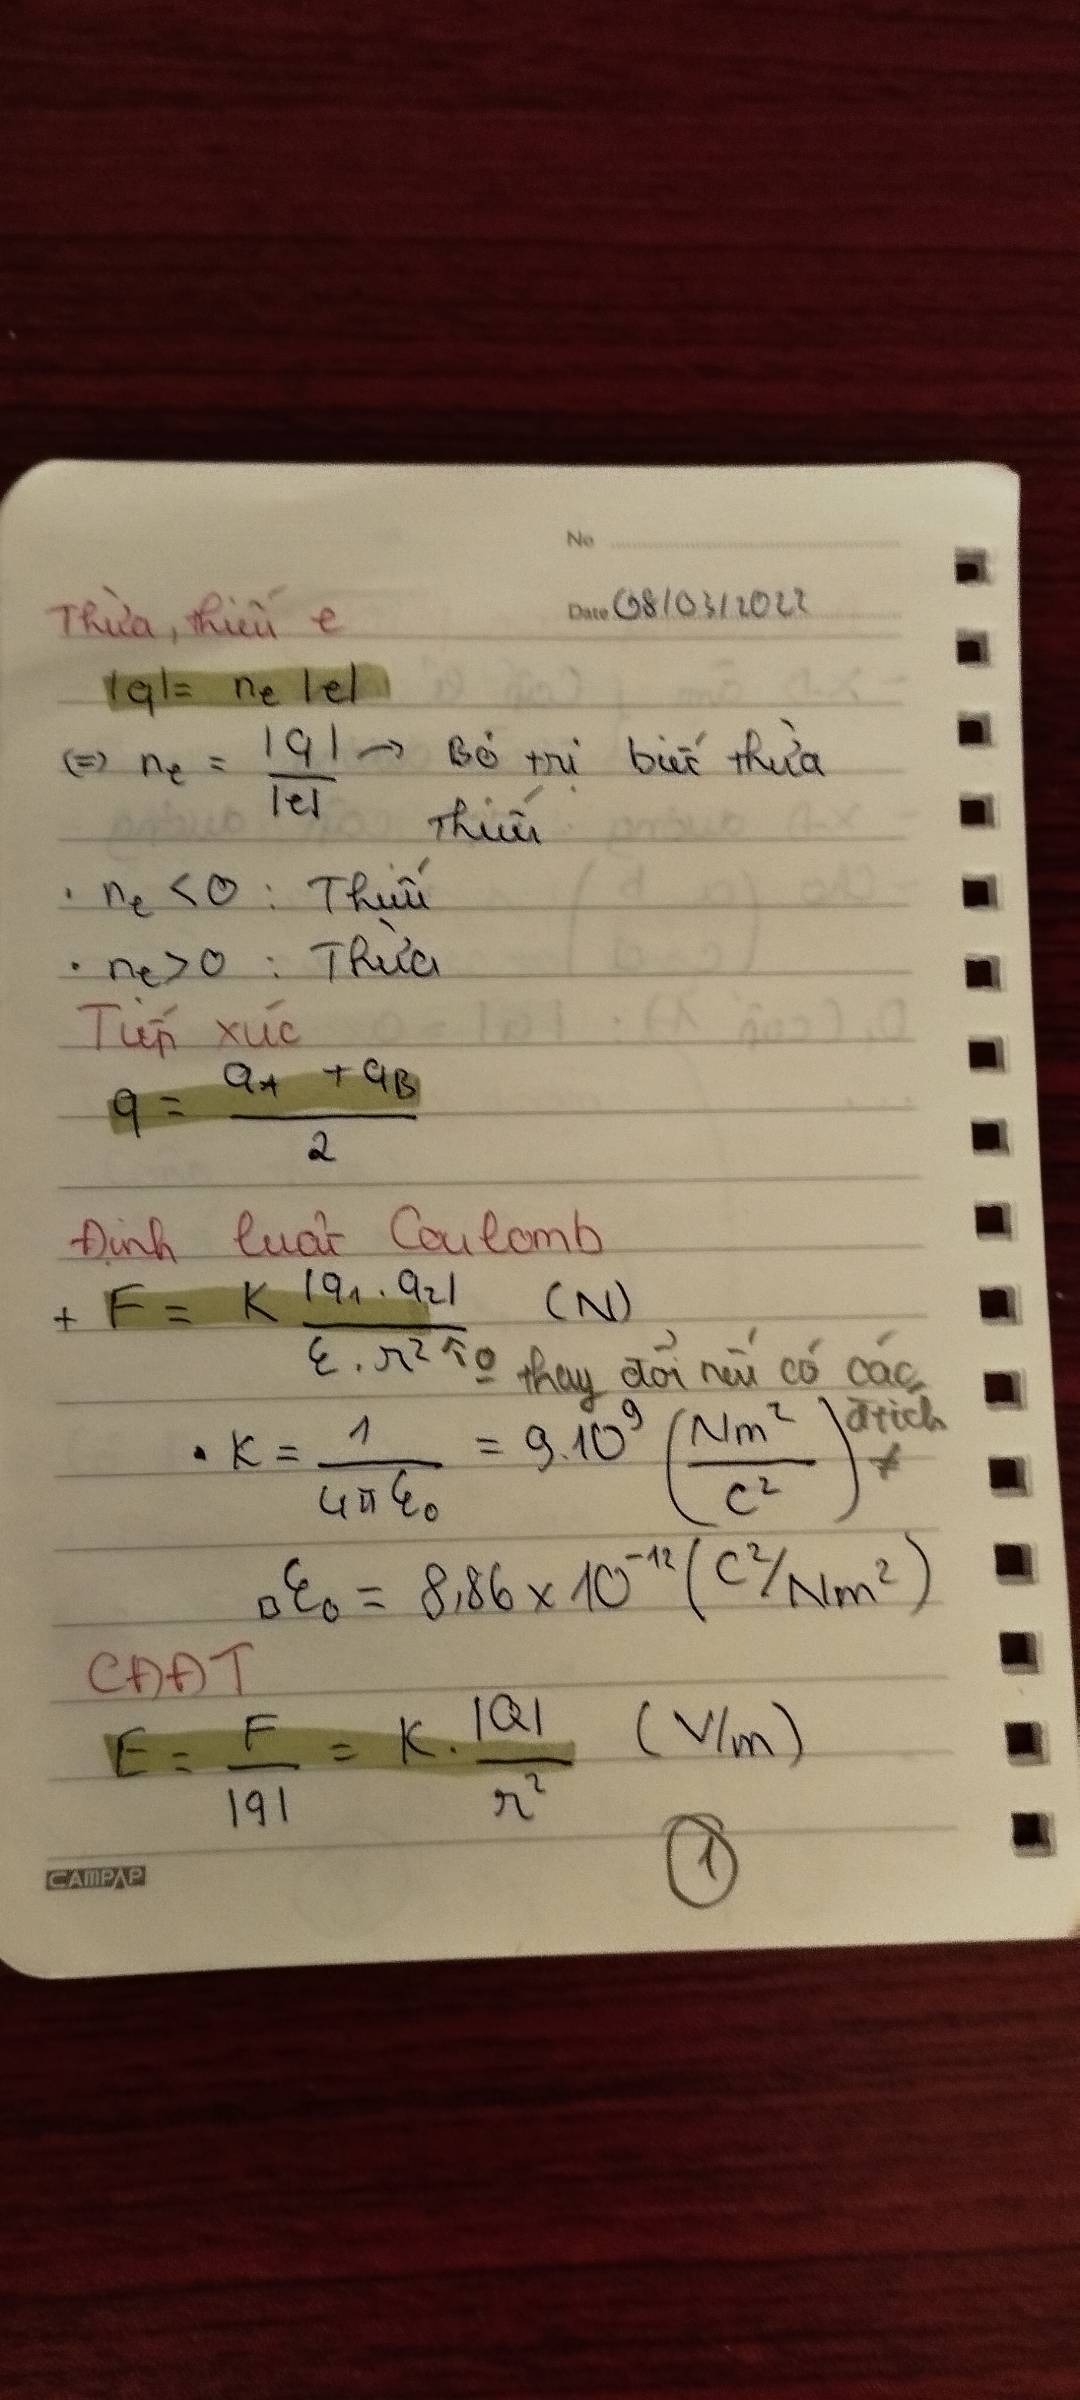 No
Thừa, thiếu e
Date 08/03/2022
|q| = ne |e|
(=) ne = |q| / |e| → Bỏ trị biết thừa
thiếu
· ne < 0 : Thiếu
· ne > 0 : Thừa
Tiếp xúc
q = (qA + qB) / 2
Định luật Coulomb
+ F = K |q1 . q2| / (ε . r²) (N)
thay đổi nếu có các
đtích
≠
• K = 1 / (4π ε0) = 9.10⁹ (Nm² / C²)
▫ ε0 = 8,86 × 10⁻¹² (C²/Nm²)
CĐĐT
E = F / |q| = K . |Q| / r² (V/m)
1
CAMPAP